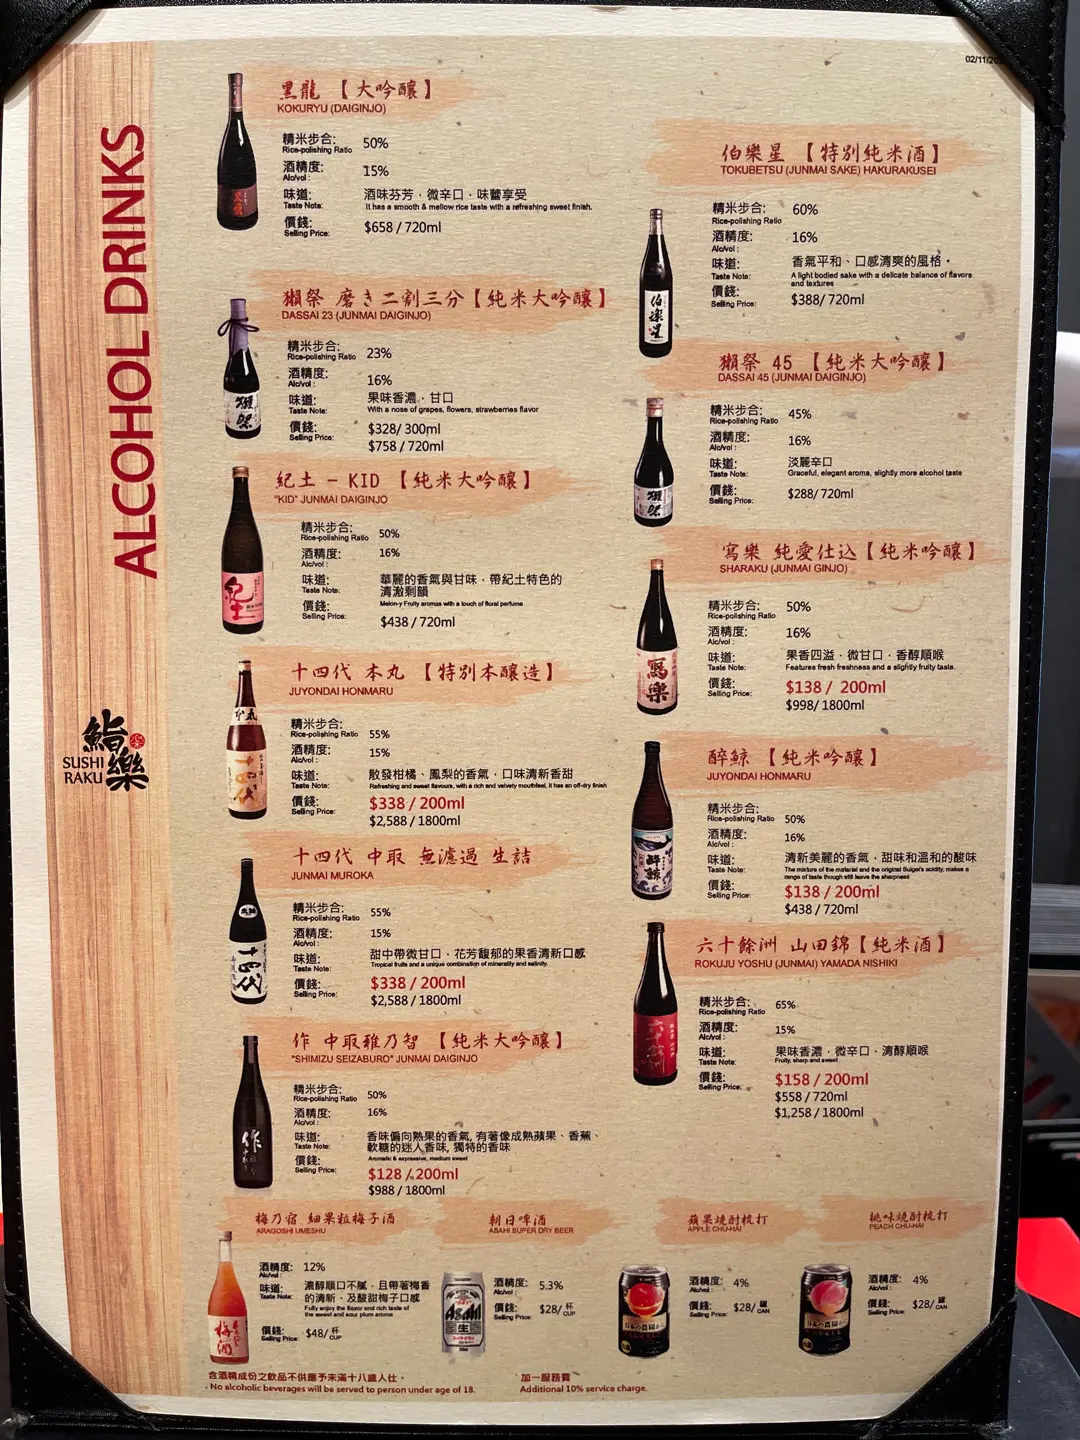 02/11/20
ALCOHOL DRINKS
鮨樂
SUSHI
RAKU
黑龍 【大吟釀】
KOKURYU (DAIGINJO)
精米步合: 50%
Rice-polishing Ratio
酒精度: 15%
Alc/vol :
味道: 酒味芬芳．微辛口．味蕾享受
Taste Note: It has a smooth & mellow rice taste with a refreshing sweet finish.
價錢: $658 / 720ml
Selling Price:
獺祭 磨き二割三分【純米大吟釀】
DASSAI 23 (JUNMAI DAIGINJO)
精米步合: 23%
Rice-polishing Ratio
酒精度: 16%
Alc/vol :
味道: 果味香濃．甘口
Taste Note: With a nose of grapes, flowers, strawberries flavor
價錢: $328/ 300ml
Selling Price:
$758 / 720ml
紀土 - KID 【純米大吟釀】
"KID" JUNMAI DAIGINJO
精米步合: 50%
Rice-polishing Ratio
酒精度: 16%
Alc/vol :
味道: 華麗的香氣與甘味．帶紀土特色的
Taste Note: 清澈剩韻
Melon-y Fruity aromas with a touch of floral perfume
價錢: $438 / 720ml
Selling Price:
十四代 本丸 【特別本釀造】
JUYONDAI HONMARU
精米步合: 55%
Rice-polishing Ratio
酒精度: 15%
Alc/vol :
味道: 散發柑橘、鳳梨的香氣．口味清新香甜
Taste Note: Refreshing and sweet flavours, with a rich and velvety mouthfeel, it has an off-dry finish
價錢: $338 / 200ml
Selling Price: $2,588 / 1800ml
十四代 中取 無濾過 生詰
JUNMAI MUROKA
精米步合: 55%
Rice-polishing Ratio
酒精度: 15%
Alc/vol :
味道: 甜中帶微甘口．花芳馥郁的果香清新口感
Taste Note: Tropical fruits and a unique combination of minerality and salinity.
價錢: $338 / 200ml
Selling Price: $2,588 / 1800ml
作 中取雅乃智 【純米大吟釀】
"SHIMIZU SEIZABURO" JUNMAI DAIGINJO
精米步合: 50%
Rice-polishing Ratio
酒精度: 16%
Alc/vol :
味道: 香味偏向熟果的香氣, 有著像成熟蘋果、香蕉、
Taste Note: 軟糖的迷人香味, 獨特的香味
Aromatic & expressive, medium sweet
價錢: $128 / 200ml
Selling Price: $988 / 1800ml
伯樂星 【特別純米酒】
TOKUBETSU (JUNMAI SAKE) HAKURAKUSEI
精米步合: 60%
Rice-polishing Ratio
酒精度: 16%
Alc/vol :
味道: 香氣平和、口感清爽的風格．
Taste Note: A light bodied sake with a delicate balance of flavors
and textures
價錢: $388/ 720ml
Selling Price:
獺祭 45 【純米大吟釀】
DASSAI 45 (JUNMAI DAIGINJO)
精米步合: 45%
Rice-polishing Ratio
酒精度: 16%
Alc/vol :
味道: 淡麗辛口
Taste Note: Graceful, elegant aroma, slightly more alcohol taste
價錢: $288/ 720ml
Selling Price:
寫樂 純愛仕込【純米吟釀】
SHARAKU (JUNMAI GINJO)
精米步合: 50%
Rice-polishing Ratio
酒精度: 16%
Alc/vol :
味道: 果香四溢．微甘口．香醇順喉
Taste Note: Features fresh freshness and a slightly fruity taste.
價錢: $138 / 200ml
Selling Price: $998/ 1800ml
醉鯨 【純米吟釀】
JUYONDAI HONMARU
精米步合: 50%
Rice-polishing Ratio
酒精度: 16%
Alc/vol :
味道: 清新美麗的香氣．甜味和溫和的酸味
Taste Note: The mixture of the material and the original Suigei's acidity, makes a
range of taste though still leave the sharpness
價錢: $138 / 200ml
Selling Price: $438 / 720ml
六十餘洲 山田錦【純米酒】
ROKUJU YOSHU (JUNMAI) YAMADA NISHIKI
精米步合: 65%
Rice-polishing Ratio
酒精度: 15%
Alc/vol :
味道: 果味香濃．微辛口．清醇順喉
Taste Note: Fruity, sharp and sweet
價錢: $158 / 200ml
Selling Price: $558 / 720ml
$1,258 / 1800ml
梅乃宿 細果粒梅子酒
ARAGOSHI UMESHU
酒精度: 12%
Alc/vol :
味道: 濃醇順口不膩．且帶著梅香
Taste Note: 的清新．及酸甜梅子口感
Fully enjoy the flavor and rich taste of
the sweet and sour plum aroma
價錢: $48/ 杯
Selling Price: CUP
朝日啤酒
ASAHI SUPER DRY BEER
酒精度: 5.3%
Alc/vol :
價錢: $28/ 杯
Selling Price: CUP
蘋果燒酎梳打
APPLE CHU-HAI
酒精度: 4%
Alc/vol :
價錢: $28/ 罐
Selling Price: CAN
桃味燒酎梳打
PEACH CHU-HAI
酒精度: 4%
Alc/vol :
價錢: $28/ 罐
Selling Price: CAN
含酒精成份之飲品不供應予未滿十八歲人仕．
. No alcoholic beverages will be served to person under age of 18.
加一服務費
Additional 10% service charge.